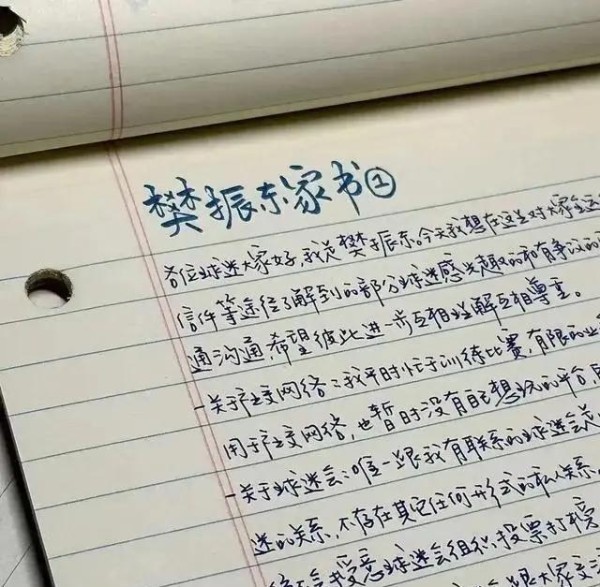 樊振东家书①
各位球迷大家好,我是樊振东。今天我想在这里对大家
信件等途径了解到的部分球迷感兴趣的和有争议的
通沟通,希望彼此进一步互相理解互相尊重。
-关于社交网络:我平时忙于训练比赛,有限的业
用于社交网络,也暂时没有自己想玩的平台,
-关于球迷会:唯一跟我有联系的球迷会
迷的关系,不存在其它任何形式的私人关系。
会授意球迷会组织投票打榜
跟大家交